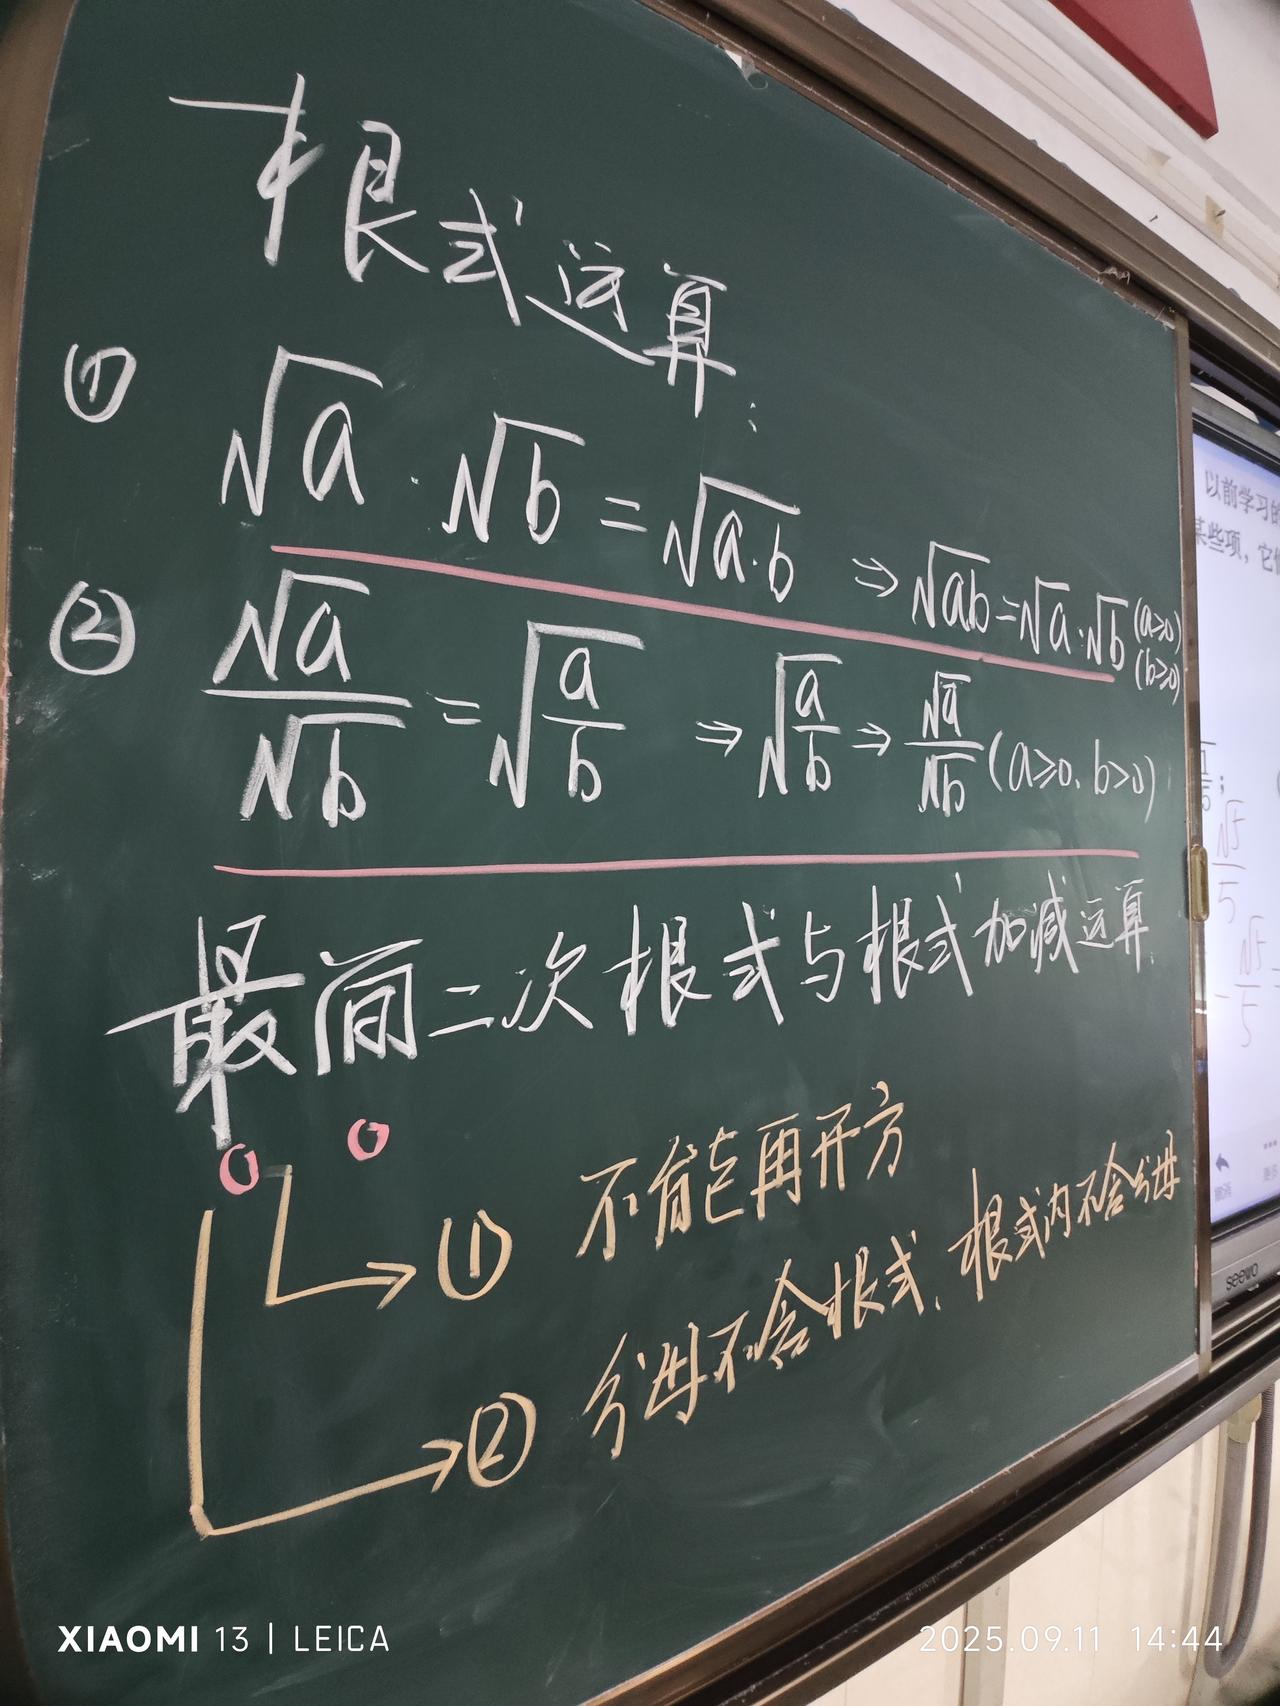 根式运算:
① √a · √b = √a·b ⇒ √ab = √a·√b (a≥0)
(b≥0)
② √a/√b = √(a/b) ⇒ √(a/b) ⇒ √a/√b (a≥0. b>0)
最简二次根式与根式加减运算.
① 不能再开方
② 分母不含根式. 根式内不含分母
以前学习的
某些项,它
√5/5
-√5/5
seewo
XIAOMI 13 | LEICA
2025.09.11 14:44